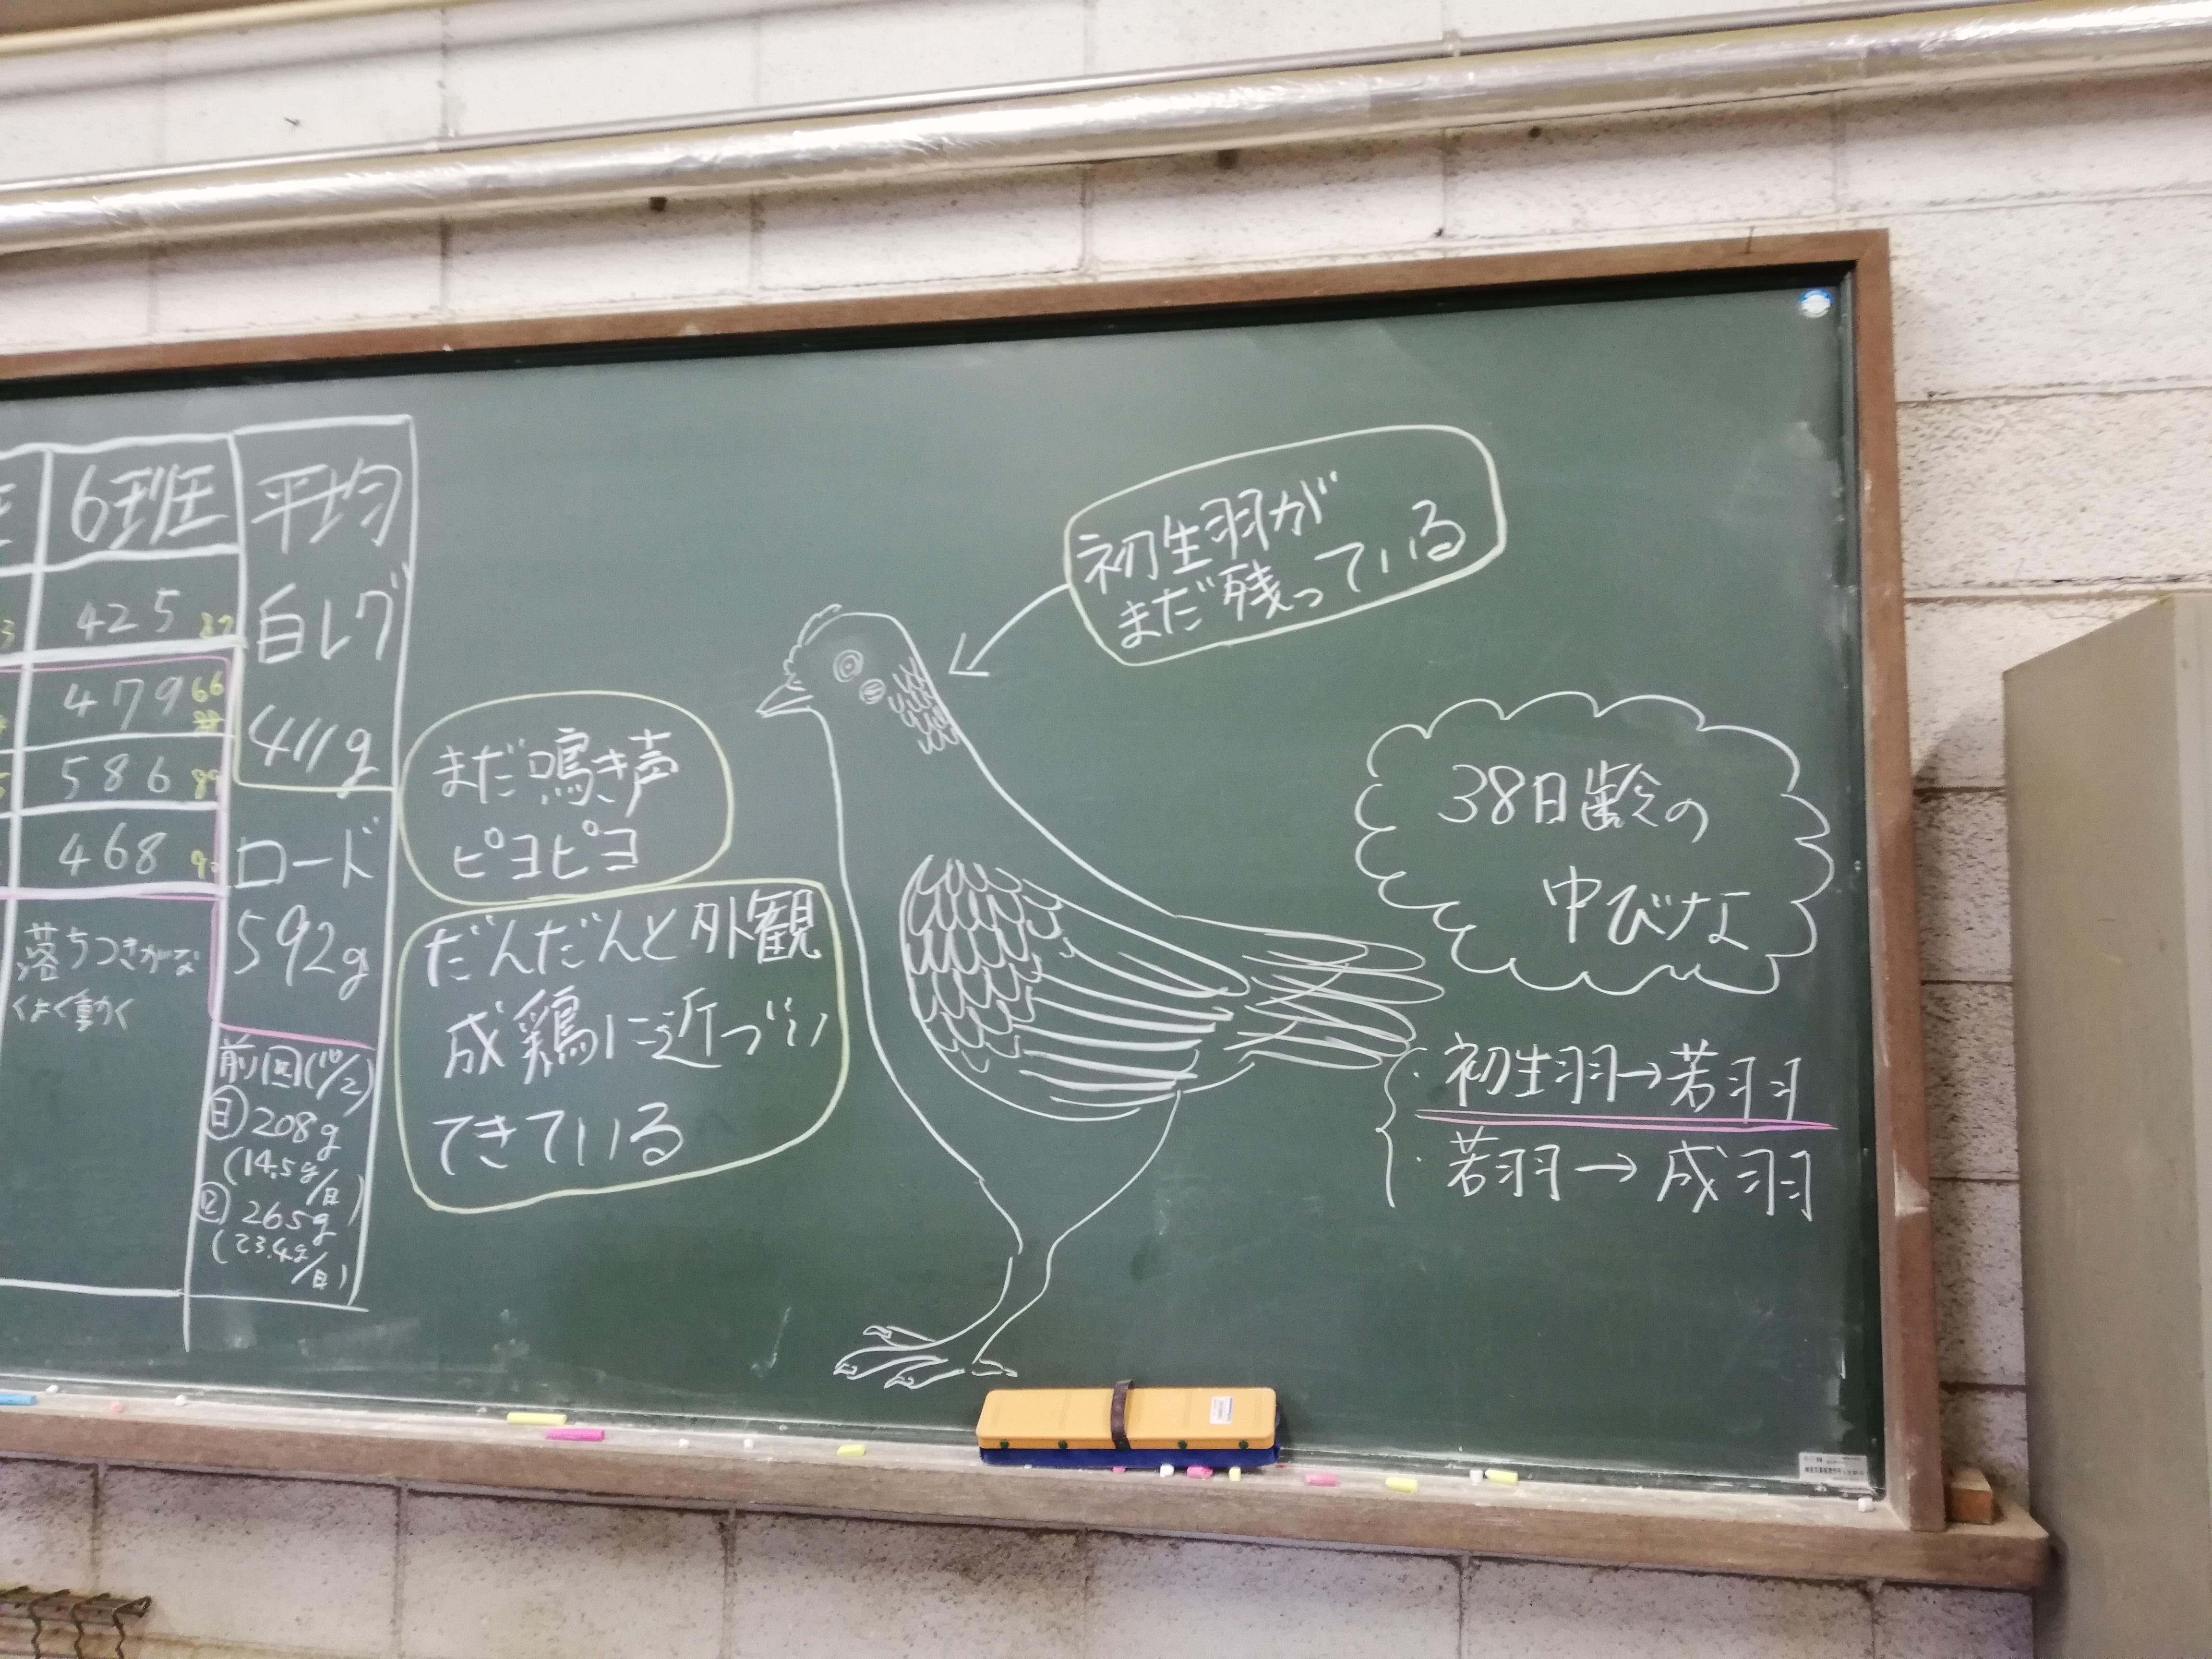 6班
425
479 66
586
468
落ちつきがな
くよく動く
平均
白レグ
411g
ロード
592g
前回(10/2)
白 208g
(14.5g/日)
ロ 265g
(23.4g/日)
まだ鳴き声
ピヨピヨ
だんだんと外観
成鶏に近づい
てきている
初生羽が
まだ残っている
38日齢の
中びな
・初生羽→若羽
・若羽→成羽